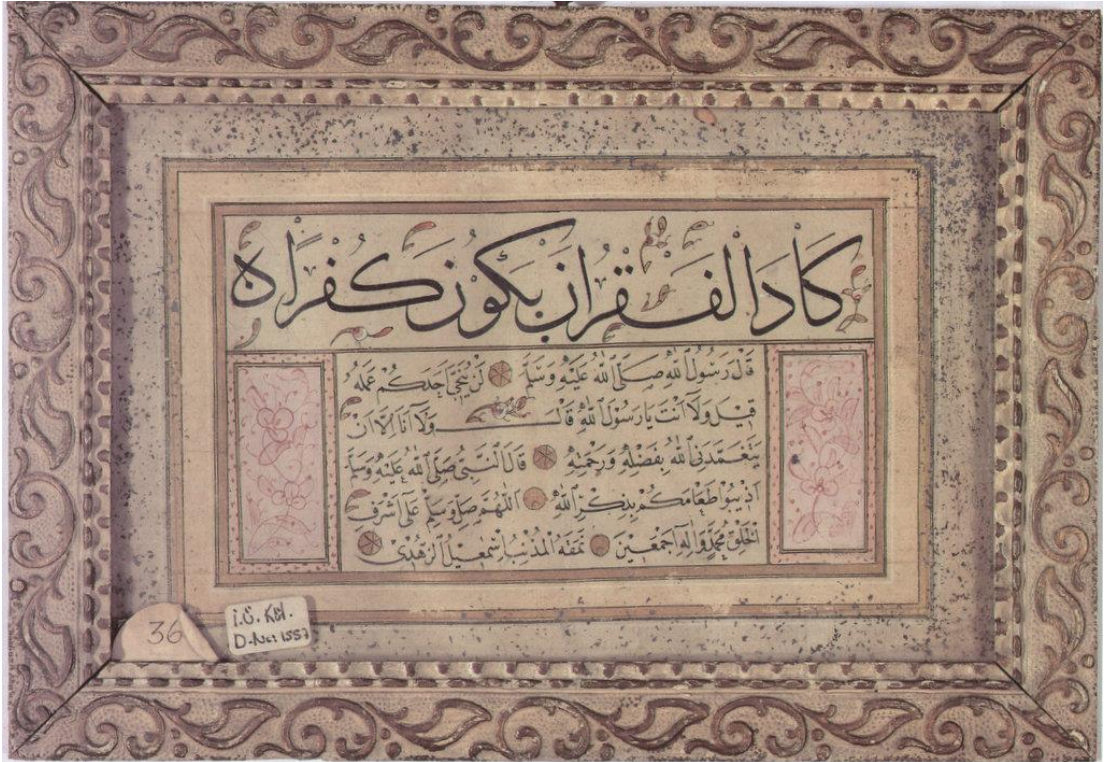 كَادَ الْفَقْرُ اَنْ يَكُونَ كُفْرًا ه
قَالَ رَسُولُ اللّٰهِ صَلَّى اللّٰهُ عَلَيْهِ وَسَلَّمَ لَنْ يُنْجِىَ اَحَدَكُمْ عَمَلُهُ
قِيلَ وَلَا اَنْتَ يَا رَسُولَ اللّٰهِ قَالَ وَلَا اَنَا اِلَّا اَنْ
يَتَغَمَّدَنِىَ اللّٰهُ بِفَضْلِهِ وَرَحْمَتِهِ قَالَ النَّبِىُّ صَلَّى اللّٰهُ عَلَيْهِ وَسَلَّمَ
اَذِيبُوا طَعَامَكُمْ بِذِكْرِ اللّٰهِ اَللّٰهُمَّ صَلِّ وَسَلِّمْ عَلَى اَشْرَفِ
الْخَلْقِ مُحَمَّدٍ وَاٰلِهِ اَجْمَعِينَ نَمَقَهُ الْمُذْنِبُ اِسْمٰعِيلُ الزُّهْدِى
36
İ.Ü. Ktl.
D.No: 1557